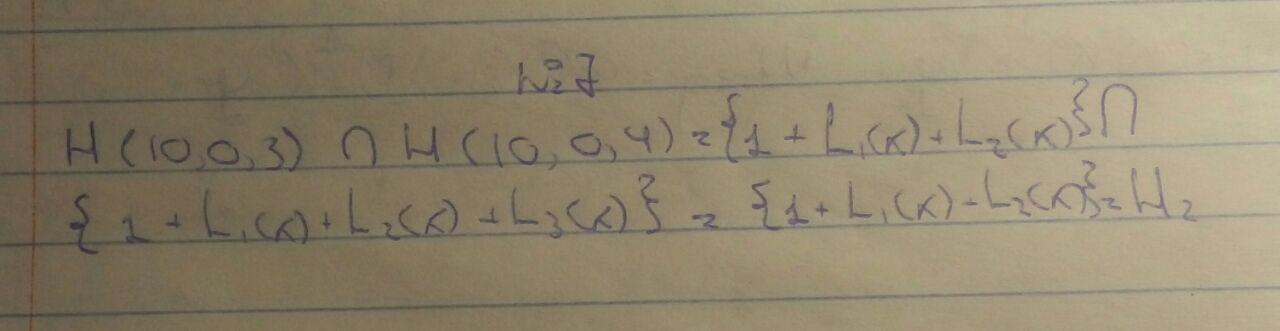 №7
H(10,0,3) ∩ H(10,0,4) = {1 + L₁(x) + L₂(x)} ∩
{1 + L₁(x) + L₂(x) + L₃(x)} = {1 + L₁(x) + L₂(x)} = H₂